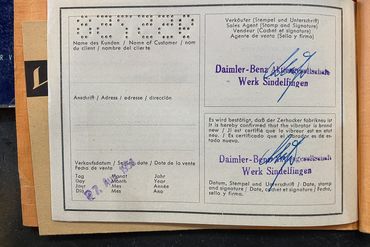 Name des Kunden / Name of Customer / nom
du client / nombre del cliente
Anschrift / Adress / adresse / dirección
Verkaufsdatum / Selling date / Date de la vente
Fecha de venta
Tag Monat Jahr
Day Month Year
Jour Mois Année
Día Mes Ano
27.
Verkäufer (Stempel und Unterschrift)
Sales Agent (Stamp and Signature)
Vendeur (Cachet et signature)
Agente de venta (Sello y firma)
Daimler-Benz Aktiengesellschaft
Werk Sindelfingen
Es wird bestätigt, daß der Zerhacker fabrikneu ist
It is hereby confirmed that the vibrator is brand
new / Il est certifié que le vibreur est en etat
neuf / Es certificado que el vibrador es de es-
tado nuevo.
Daimler-Benz
Werk Sindelfingen
Datum, Stempel und Unterschrift / Date, stamp
and signature / Date, cachet et signature / Fecha,
sello y firma